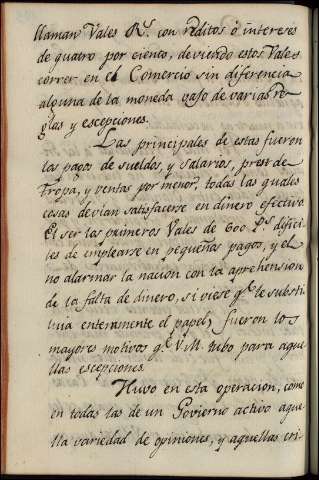 llaman Vales R.s con reditos o intereses
de quatro por ciento, deviendo estos Vales
correr en el Comercio sin diferencia
alguna de la moneda vajo de varias re-
glas y escepciones.
Las principales de estas fueron
los pagos de sueldos, y salarios, prest de
Tropa, y ventas por menor, todas las quales
cosas devian satisfacerse en dinero efectivo
El ser los primeros Vales de 600 P.s difici-
les de emplearse en pequeñas pagos, y el
no alarmar la nacion con la aprehension
de la falta de dinero, si viese q.e le substi-
tuia enteramente el papel, fueron los
mayores motivos q.e V.M. tubo para aque-
llas escepciones.
Huvo en esta operacion, como
en todas las de un Govierno activo aque-
lla variedad de opiniones, y aquellas cri-